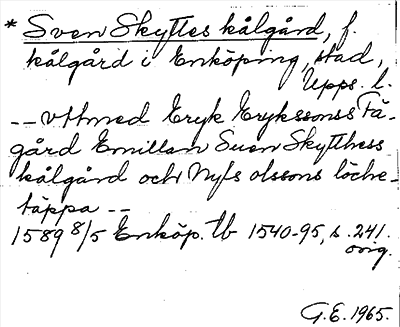 * Sven Skyttes kålgård, f.
kålgård i Enköping, stad,
Upps. l.
-- vthmed Eryk Erykssonss Fä-
gård Emillan Suen Skytthess
kålgård och Nyls olssons löche-
täppa --
1589 8/5 Enköp. tb 1540-95, s. 241.
orig.
G.E. 1965.